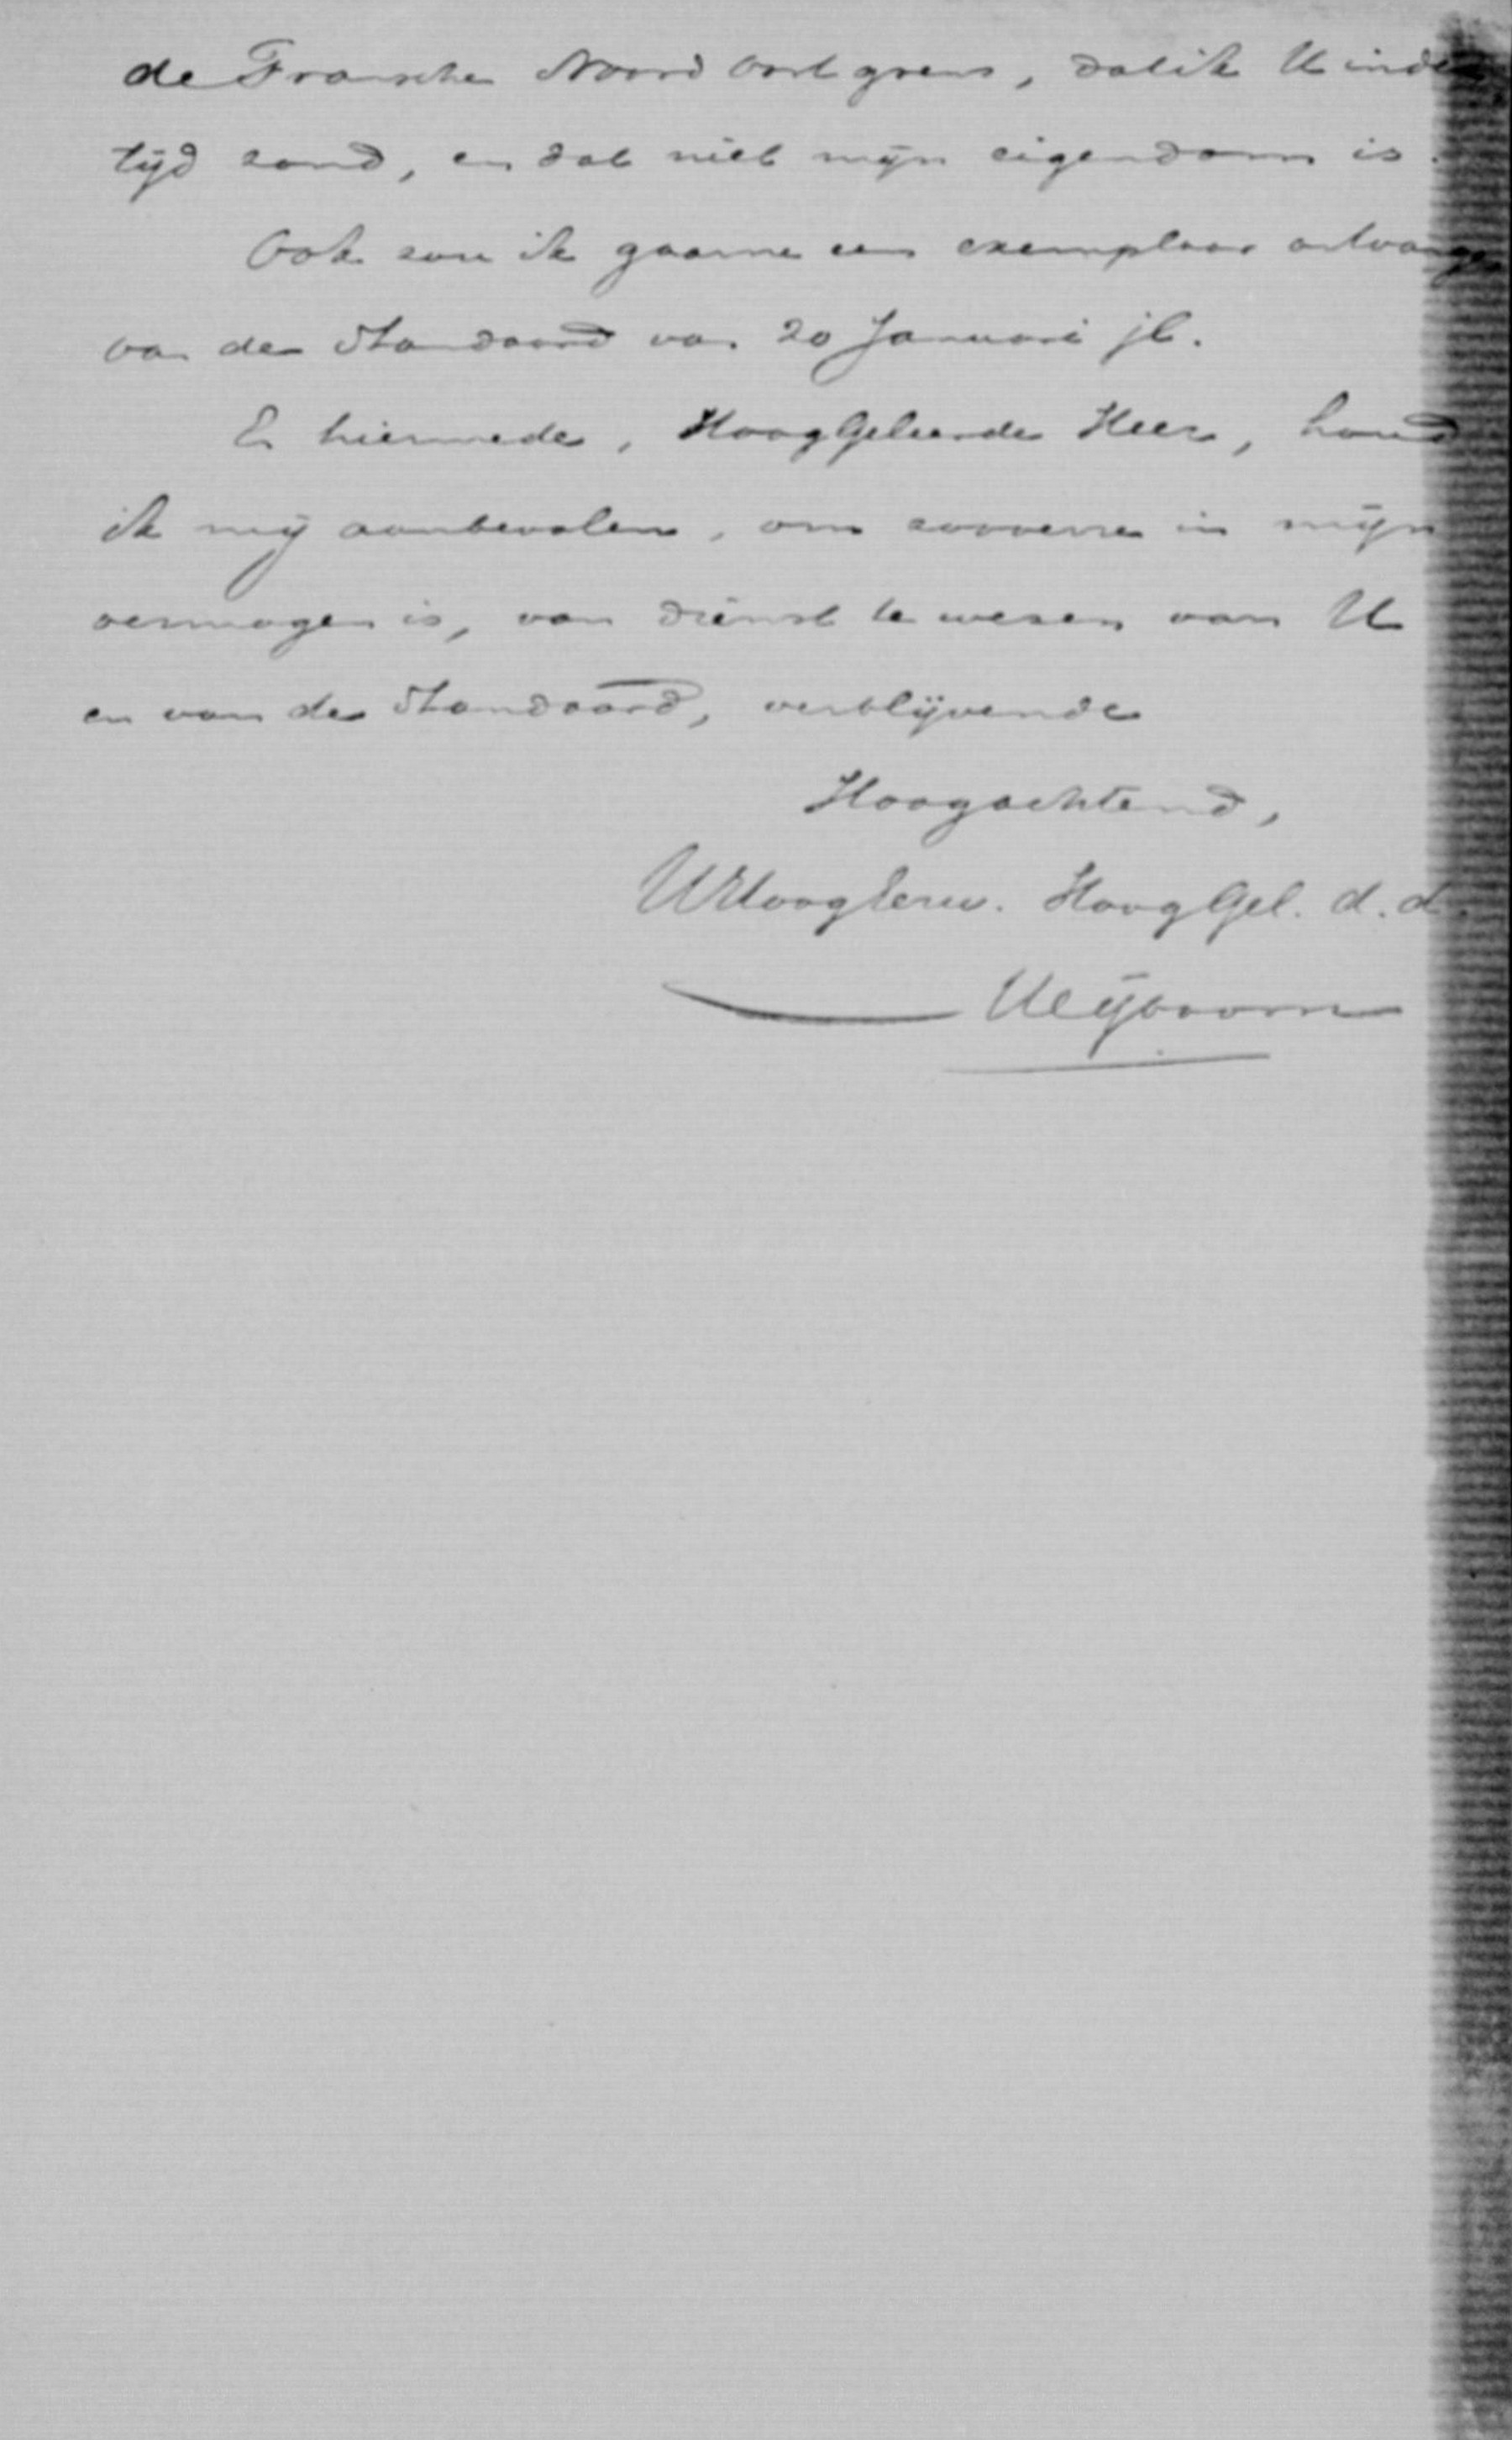 de Fransche Noord Oost grens, dat ik U inder
tijd zond, en dat niet mijn eigendom is.
Ook zou ik gaarne een exemplaar ontvangen
van de Standaard van 20 Januari jl.
En hiermede, HoogGeleerde Heer, houd
ik mij aanbevolen, om zooverre in mijn
vermogen is, van dienst te wezen van U
en van de Standaard, verblijvende
Hoogachtend,
UHoogEerw. HoogGel. d. d.